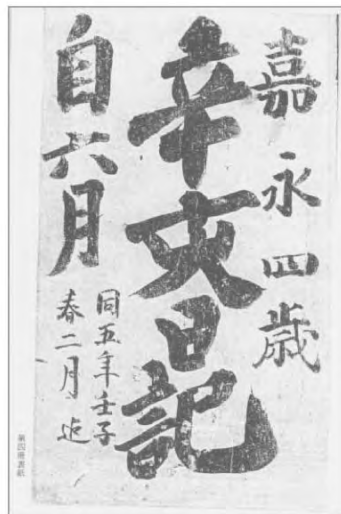 嘉永四歳
辛亥日記
自六月
同五年壬子
春二月迄
第四冊表紙